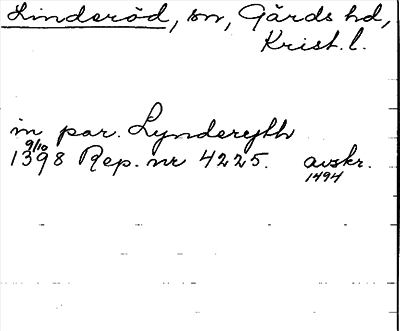 Linderöd, sn, Gärds hd,
Krist. l.
in par. Lynderyth
9/10
1398 Rep. nr 4225. avskr.
1494